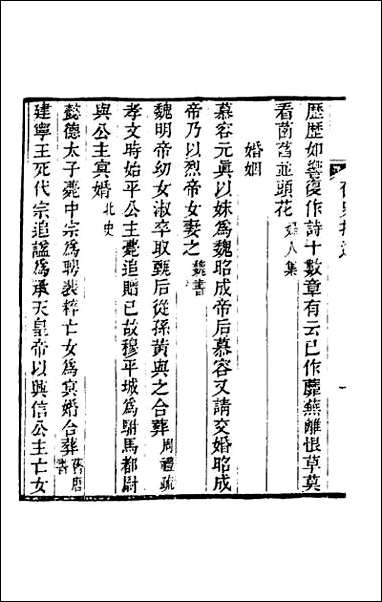 歷歷如響復作詩十數章有云已作蘼蕪離恨草莫
看菡萏並頭花婦人集
婚姻
慕容元眞以妹爲魏昭成帝后慕容又請交婚昭成
帝乃以烈帝女妻之魏書
魏明帝幼女淑卒取甄后從孫黃與之合葬周禮疏
孝文時始平公主薨追贈已故穆平城爲駙馬都尉
與公主冥婚北史
懿德太子薨中宗爲聘裴粹亡女爲冥婚合葬舊唐書
建寧王死代宗追謚爲承天皇帝以興信公主亡女